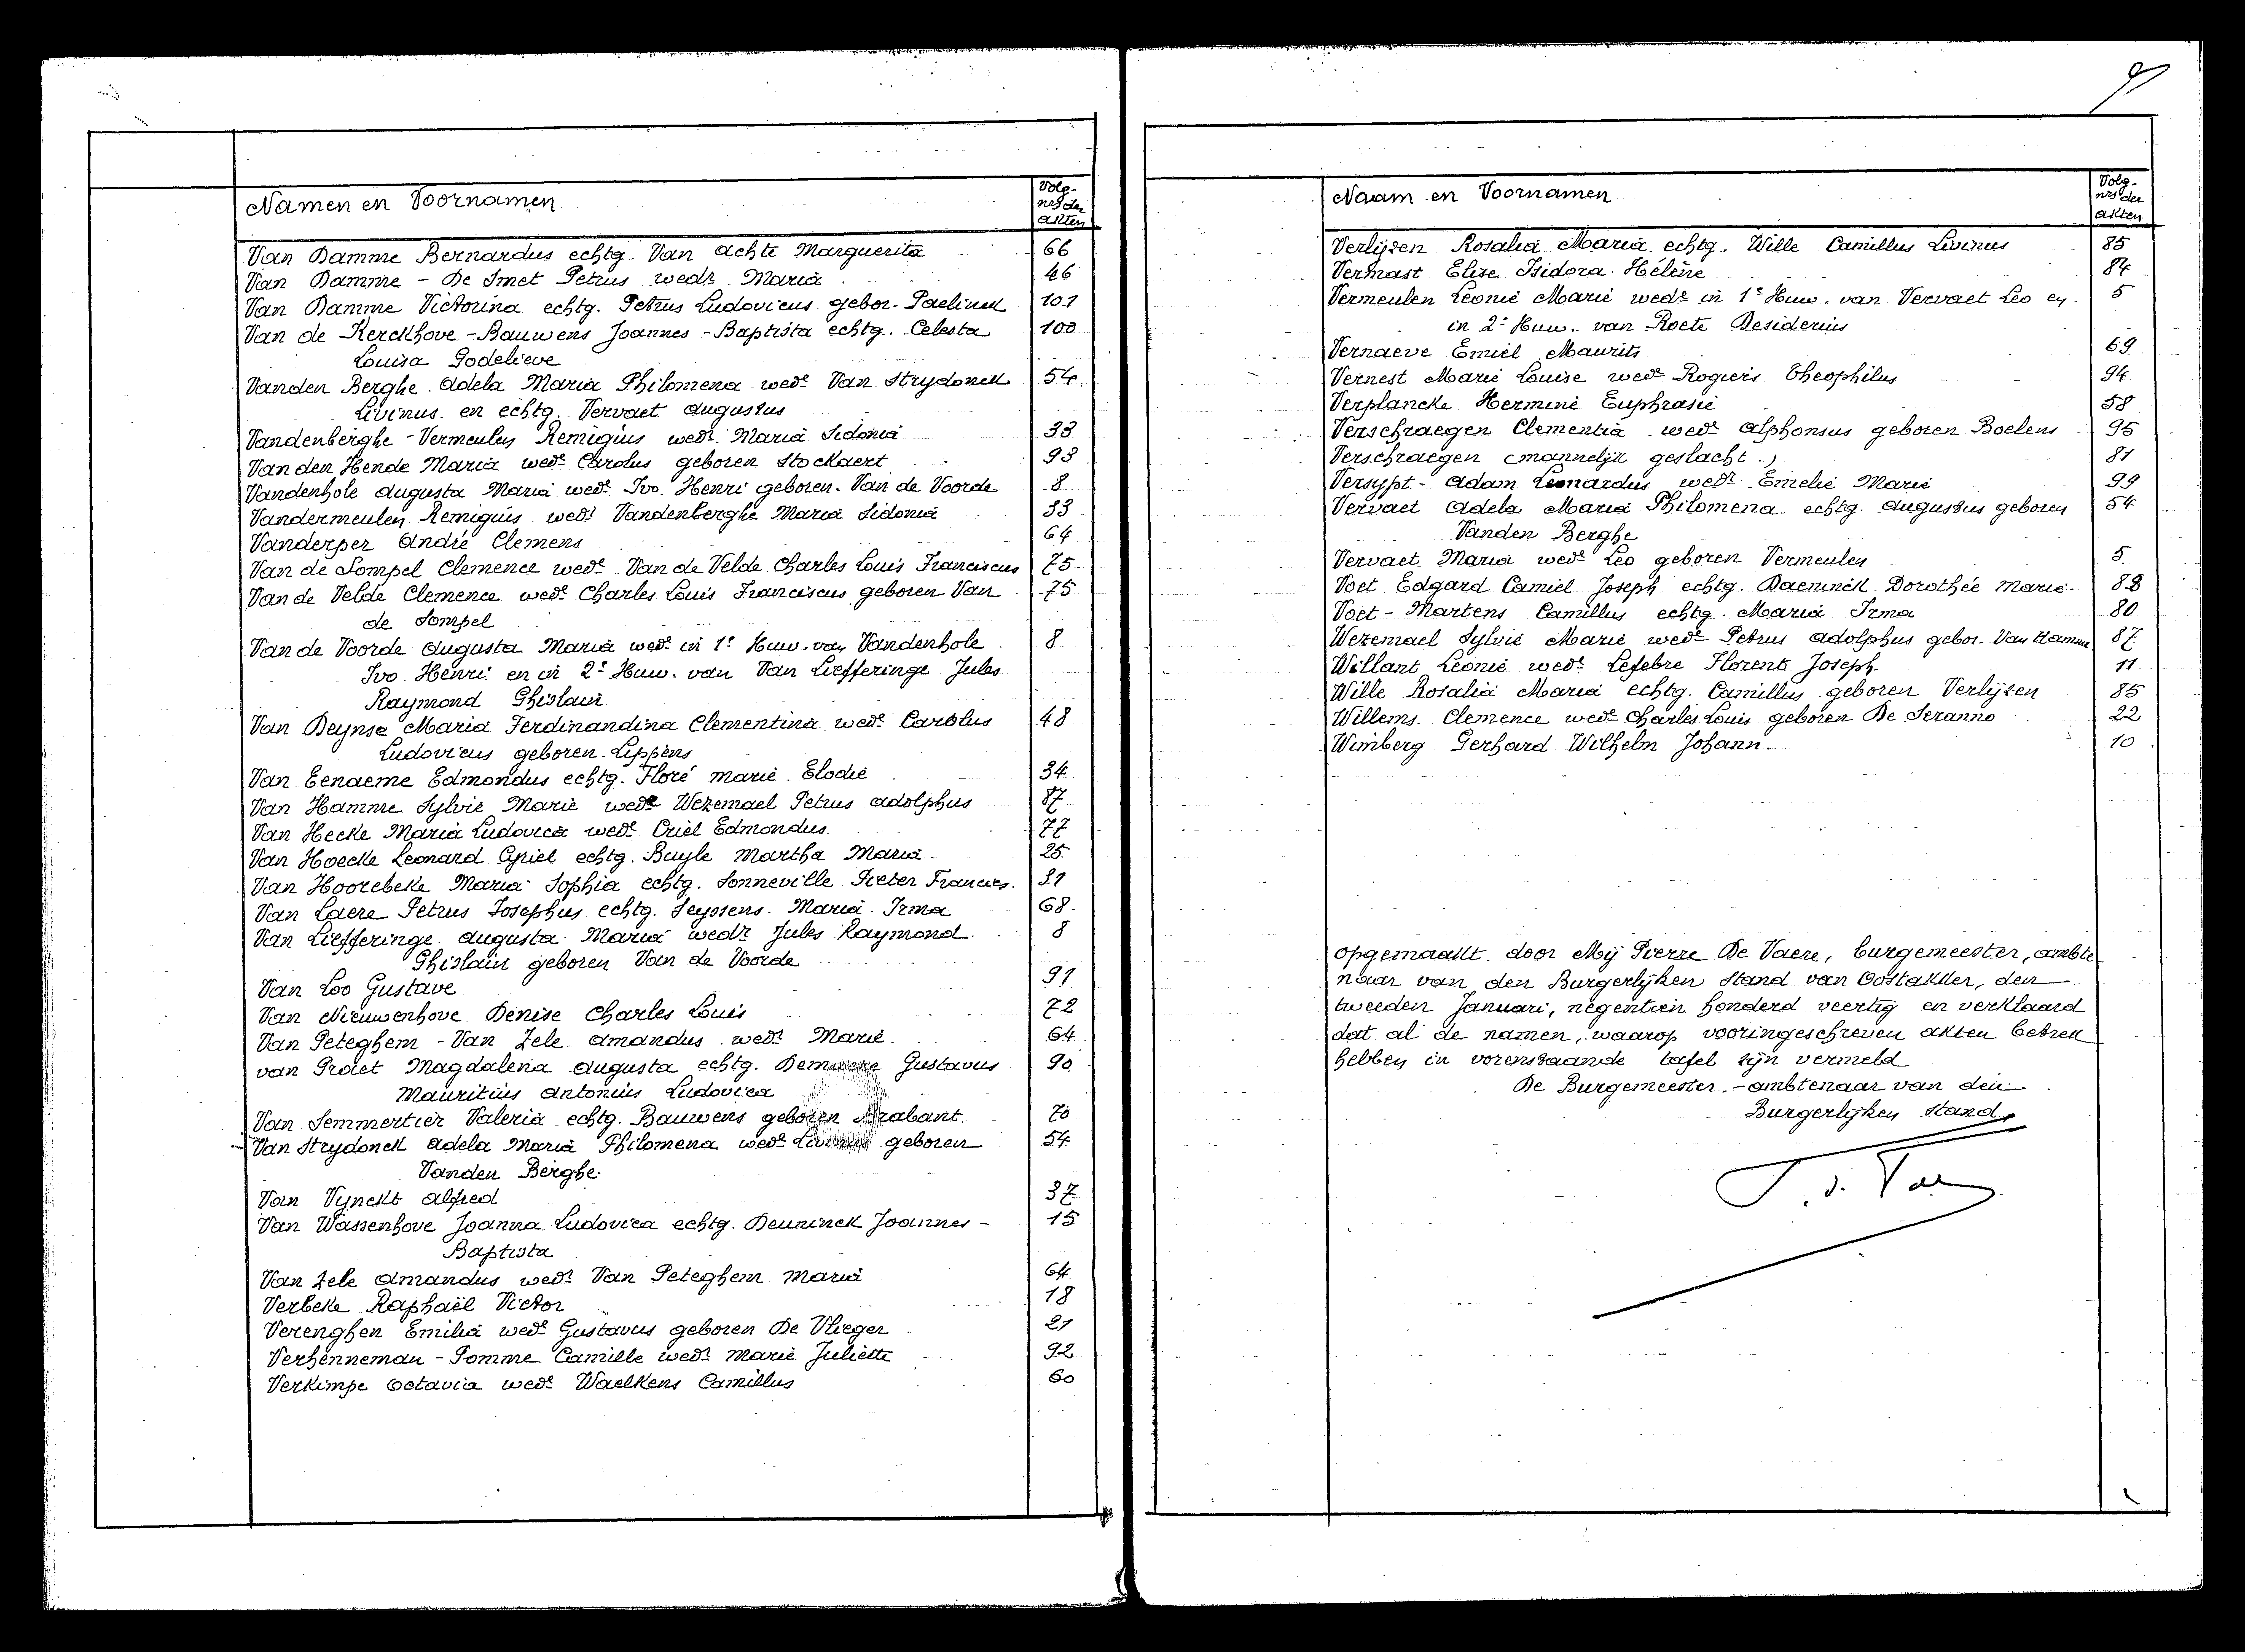 9
Namen en Voornamen
Volg-
nrs der
akten
Van Damme Bernardus echtg. Van Achte Marguerita 66
Van Damme - De Smet Petrus wedr Maria 46
Van Damme Victorina echtg. Petrus Ludovicus gebor. Paelinck 101
Van de Kerckhove - Bauwens Joannes - Baptista echtg. Celesta 100
Louisa Godelieve
Vanden Berghe Adela Maria Philomena wede Van Strydonck 54
Livinus en echtg. Vervaet Augustus
Vandenberghe - Vermeulen Remigius wedr Maria Sidonia 33
Van den Hende Maria wede Carolus geboren Stockaert 93
Vandenhole Augusta Maria wede Ivo Henri geboren Van de Voorde 8
Vandermeulen Remigius wedr Vandenberghe Maria Sidonia 33
Vanderper André Clemens 64
Van de Sompel Clemence wede Van de Velde Charles Louis Franciscus 75
Van de Velde Clemence wede Charles Louis Franciscus geboren Van 75
de Sompel
Van de Voorde Augusta Maria wede in 1e Huw. van Vandenhole 8
Ivo Henri en in 2e Huw. van Van Liefferinge Jules
Raymond Ghislain
Van Deynse Maria Ferdinandina Clementina wede Carolus 48
Ludovicus geboren Lippens
Van Eenaeme Edmondus echtg. Floré Marie Elodie 34
Van Hamme Sylvie Marie wede Wezemael Petrus Adolphus 87
Van Hecke Maria Ludovica wede Criel Edmondus 77
Van Hoecke Leonard Cyriel echtg. Buyle Martha Maria 25
Van Hoorebeke Maria Sophia echtg. Sonneville Pieter Francies. 31
Van Laere Petrus Josephus echtg. Seyssens Maria Irma 68
Van Liefferinge Augusta Maria wedr Jules Raymond 8
Ghislain geboren Van de Voorde
Van Loo Gustave 91
Van Nieuwenhove Denise Charles Louis 72
Van Peteghem - Van Zele Amandus wedr Marie 64
van Praet Magdalena Augusta echtg. Gustavus 90
Mauritius Antonius Ludovica
Van Semmertier Valeria echtg. Bauwens geboren Brabant 70
Van Strydonck Adela Maria Philomena wede Livinus geboren 54
Vanden Berghe
Van Vynckt Alfred 37
Van Wassenhove Joanna Ludovica echtg. Deuninck Joannes - 15
Baptista
Van Zele Amandus wedr Van Peteghem Maria 64
Verbeke Raphaël Victor 18
Verenghen Emilia wede Gustavus geboren De Vlieger 21
Verhenneman - Pomme Camille wedr Marie Juliette 92
Verkimpe Octavia wede Waelkens Camillus 60
Naam en Voornamen
Volg-
nrs der
akten
Verlijsen Rosalia Maria echtg. Wille Camillus Livinus 85
Vermast Elise Isidora Hélène 84
Vermeulen Leonie Marie wede in 1e Huw. van Vervaet Leo en 5
in 2e Huw. van Roete Desiderius
Vernaeve Emiel Maurits 69
Vernest Marie Louise wede Rogiers Theophilus 94
Verplancke Hermine Euphrasie 58
Verschraegen Clementia wede Alphonsus geboren Boelens 95
Verschraegen (mannelijk geslacht.) 81
Versypt - Adam Leonardus wedr Emelie Marie 99
Vervaet Adela Maria Philomena echtg. Augustus geboren 54
Vanden Berghe
Vervaet Maria wede Leo geboren Vermeulen 5
Voet Edgard Camiel Joseph echtg. Daeninck Dorothée Marie. 83
Voet - Martens Camillus echtg. Maria Irma 80
Wezemael Sylvie Marie wede Petrus Adolphus gebor. Van Hamme 87
Willant Léonie wede Lefebre Florent Joseph 11
Wille Rosalia Maria echtg. Camillus geboren Verlijsen 85
Willems Clemence wede Charles Louis geboren De Seranno 22
Wimberg Gerhard Wilhelm Johann. 10
Opgemaakt door Mij Pierre De Vaere, burgemeester, ambte
naar van den Burgerlijken Stand van Oostakker, den
tweeden Januari, negentien honderd veertig en verklaard
dat al de namen, waarop vooringeschreven akten betrek
hebben in vorenstaande tafel zijn vermeld
De Burgemeester - ambtenaar van den
Burgerlijken Stand,